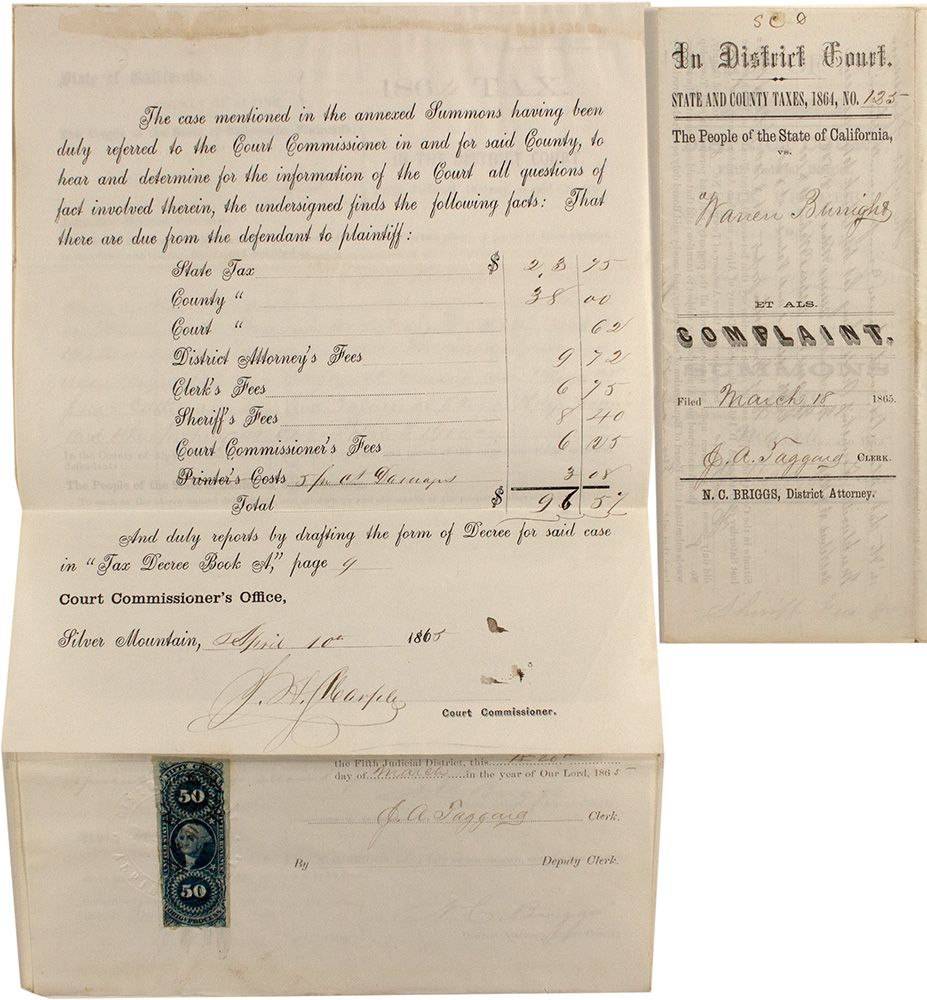 The case mentioned in the annexed Summons having been
duly referred to the Court Commissioner in and for said County, to
hear and determine for the information of the Court all questions of
fact involved therein, the undersigned finds the following facts: That
there are due from the defendant to plaintiff:
State Tax $ 23 75
County " 38 00
Court " 62
District Attorney's Fees 9 72
Clerk's Fees 6 75
Sheriff's Fees 8 40
Court Commissioner's Fees 6 25
Printer's Costs 5 pr ct Damages 3 08
Total $ 96 57
And duly reports by drafting the form of Decree for said case
in "Tax Decree Book A," page 9
Court Commissioner's Office,
Silver Mountain, April 10th 1865
Court Commissioner.
the Fifth Judicial District, this
day of March in the year of Our Lord, 1865
J. A. Taggard Clerk.
By Deputy Clerk.
N. C. Briggs
FIFTY CENTS
50
50
ORIG. PROCESS
In District Court.
STATE AND COUNTY TAXES, 1864, NO. 125
The People of the State of California,
vs.
Warren Bunight
ET ALS.
COMPLAINT.
Filed March 18 1865.
J. A. Taggard CLERK.
N. C. BRIGGS, District Attorney.